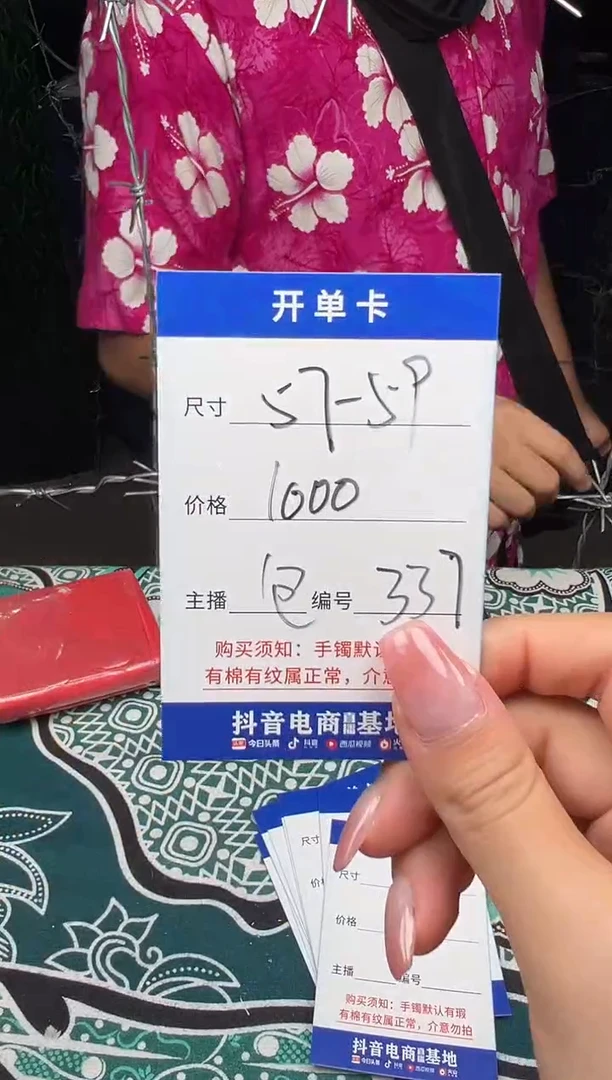 开单卡
尺寸 57-59
价格 1000
主播 包 编号 337
购买须知：手镯默认
有棉有纹属正常，介意
抖音电商直播基地
今日头条 抖音 西瓜视频 火
尺寸
价格
尺寸
价格
主播 编号
购买须知：手镯默认有瑕
有棉有纹属正常，介意勿拍
抖音电商直播基地
今日头条 抖音 西瓜视频 火山